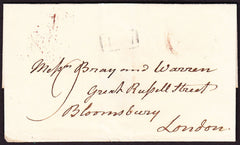 Messrs Bray and Warren
Great Russell Street
Bloomsbury
London